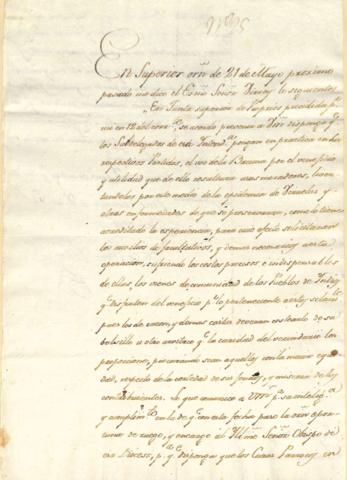 En Superior orn de 21 de Mayo proximo
pasado me dice el Exmo Señor Virrey lo siguiente
"En Junta superior de Propios precedida pr
mi en 12 del corrte se acordó prevenir a Vm disponga qe
los Subdelegados de esa Intenda pongan en practica en sus
respectivos Partidos, el uso de la Bacuna por el veneficio
y utilidad que de ella resultara a sus moradores, liver
tandolos por este medio de la epidemia de Viruelas y
otras enfermedades de que se preservaran, como lo tiene
acreditado la experiencia, para cuio efecto solicitaran
los auxilios de facultativos, y demas necesarios a esta
operacion, supliendo los costos precisos e indispensables
de ellas, los vienes de comunidad de los Pueblos de Indios
qe disfruten del veneficio pr lo perteneciente a estos solamte
pues los de razon, y demas castas deveran costearlo de su
bolsillo u otro arvitrio qe la caridad del vecindario les
proporcione, procurando sean aquellos con la maior equi
dad, respecto de la cortedad de sus fondos, y miserias de los
contribuientes. Lo que comunico a Vm pa su inteliga
y cumplimto en la de qe con esta fecha paso la orn opor
tuna de ruego, y encargo al Yllmo Señor Obispo de
esa Diocesis, pa qe disponga que los Curas Parrocos en